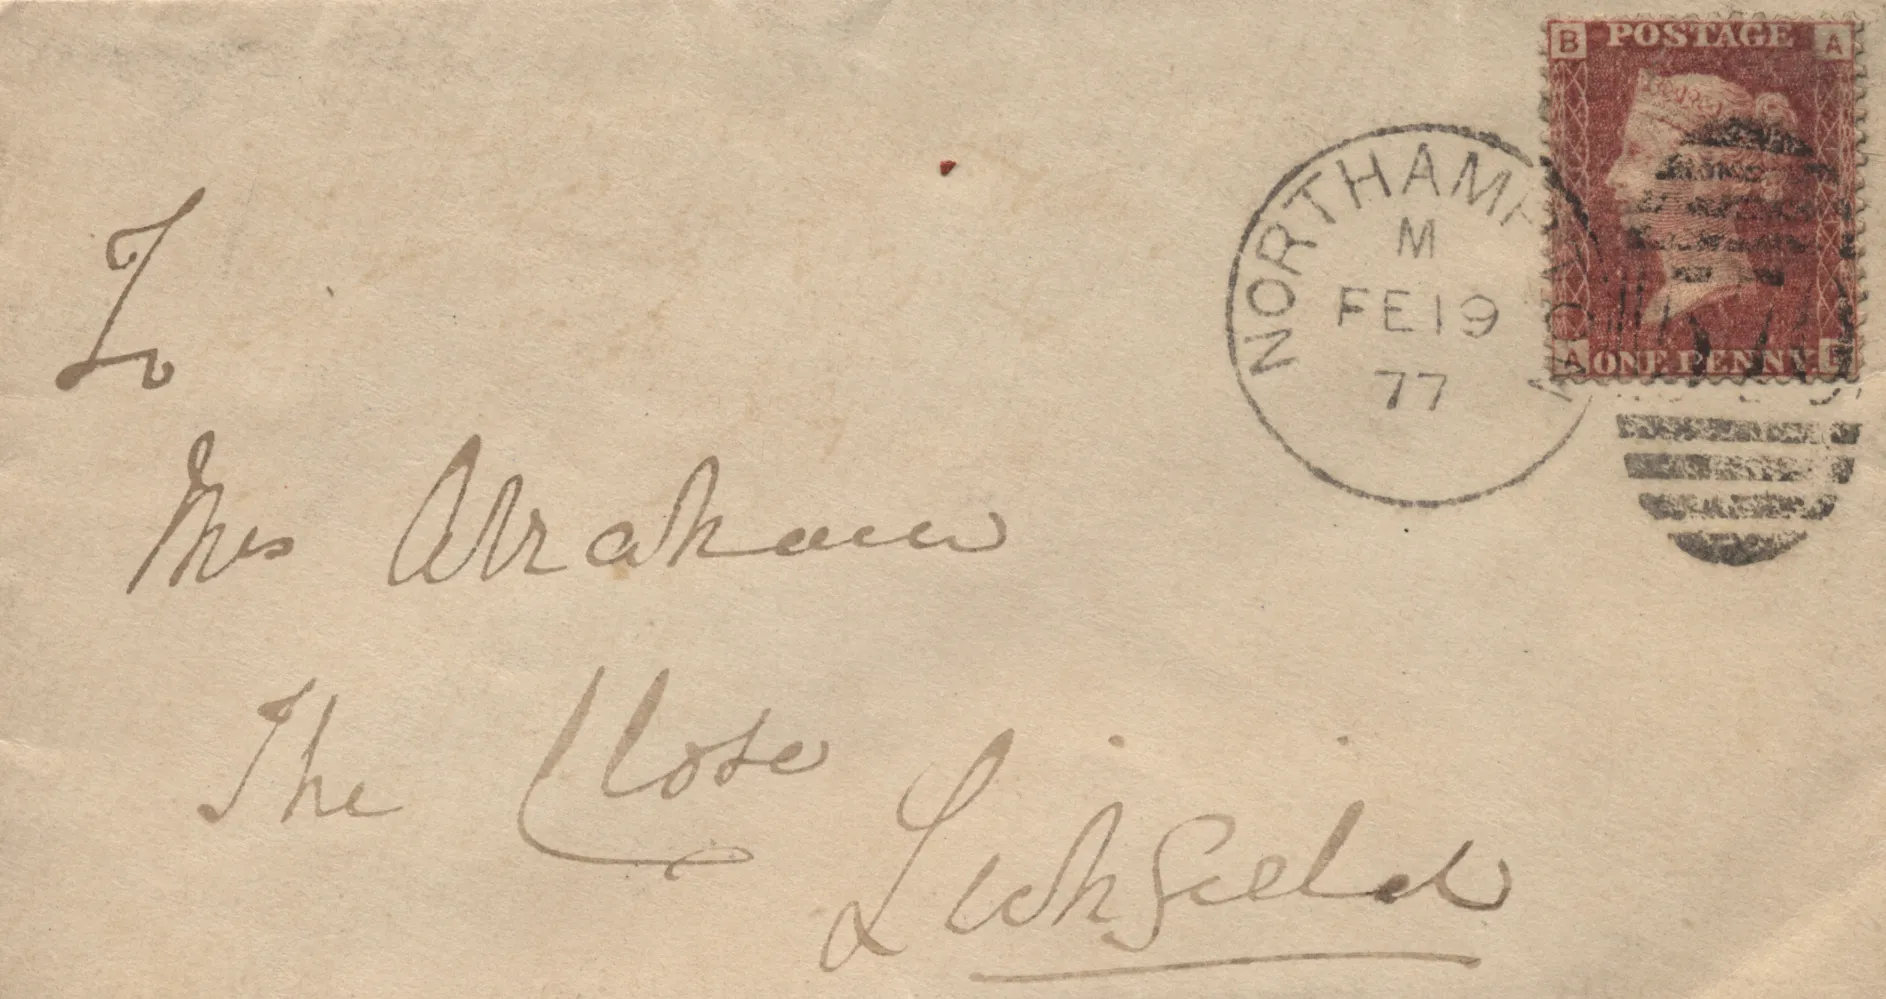 B POSTAGE A
A ONE PENNY
NORTHAMP
M
FE 19
77
To
Mrs Abraham
The Close
Lichfield